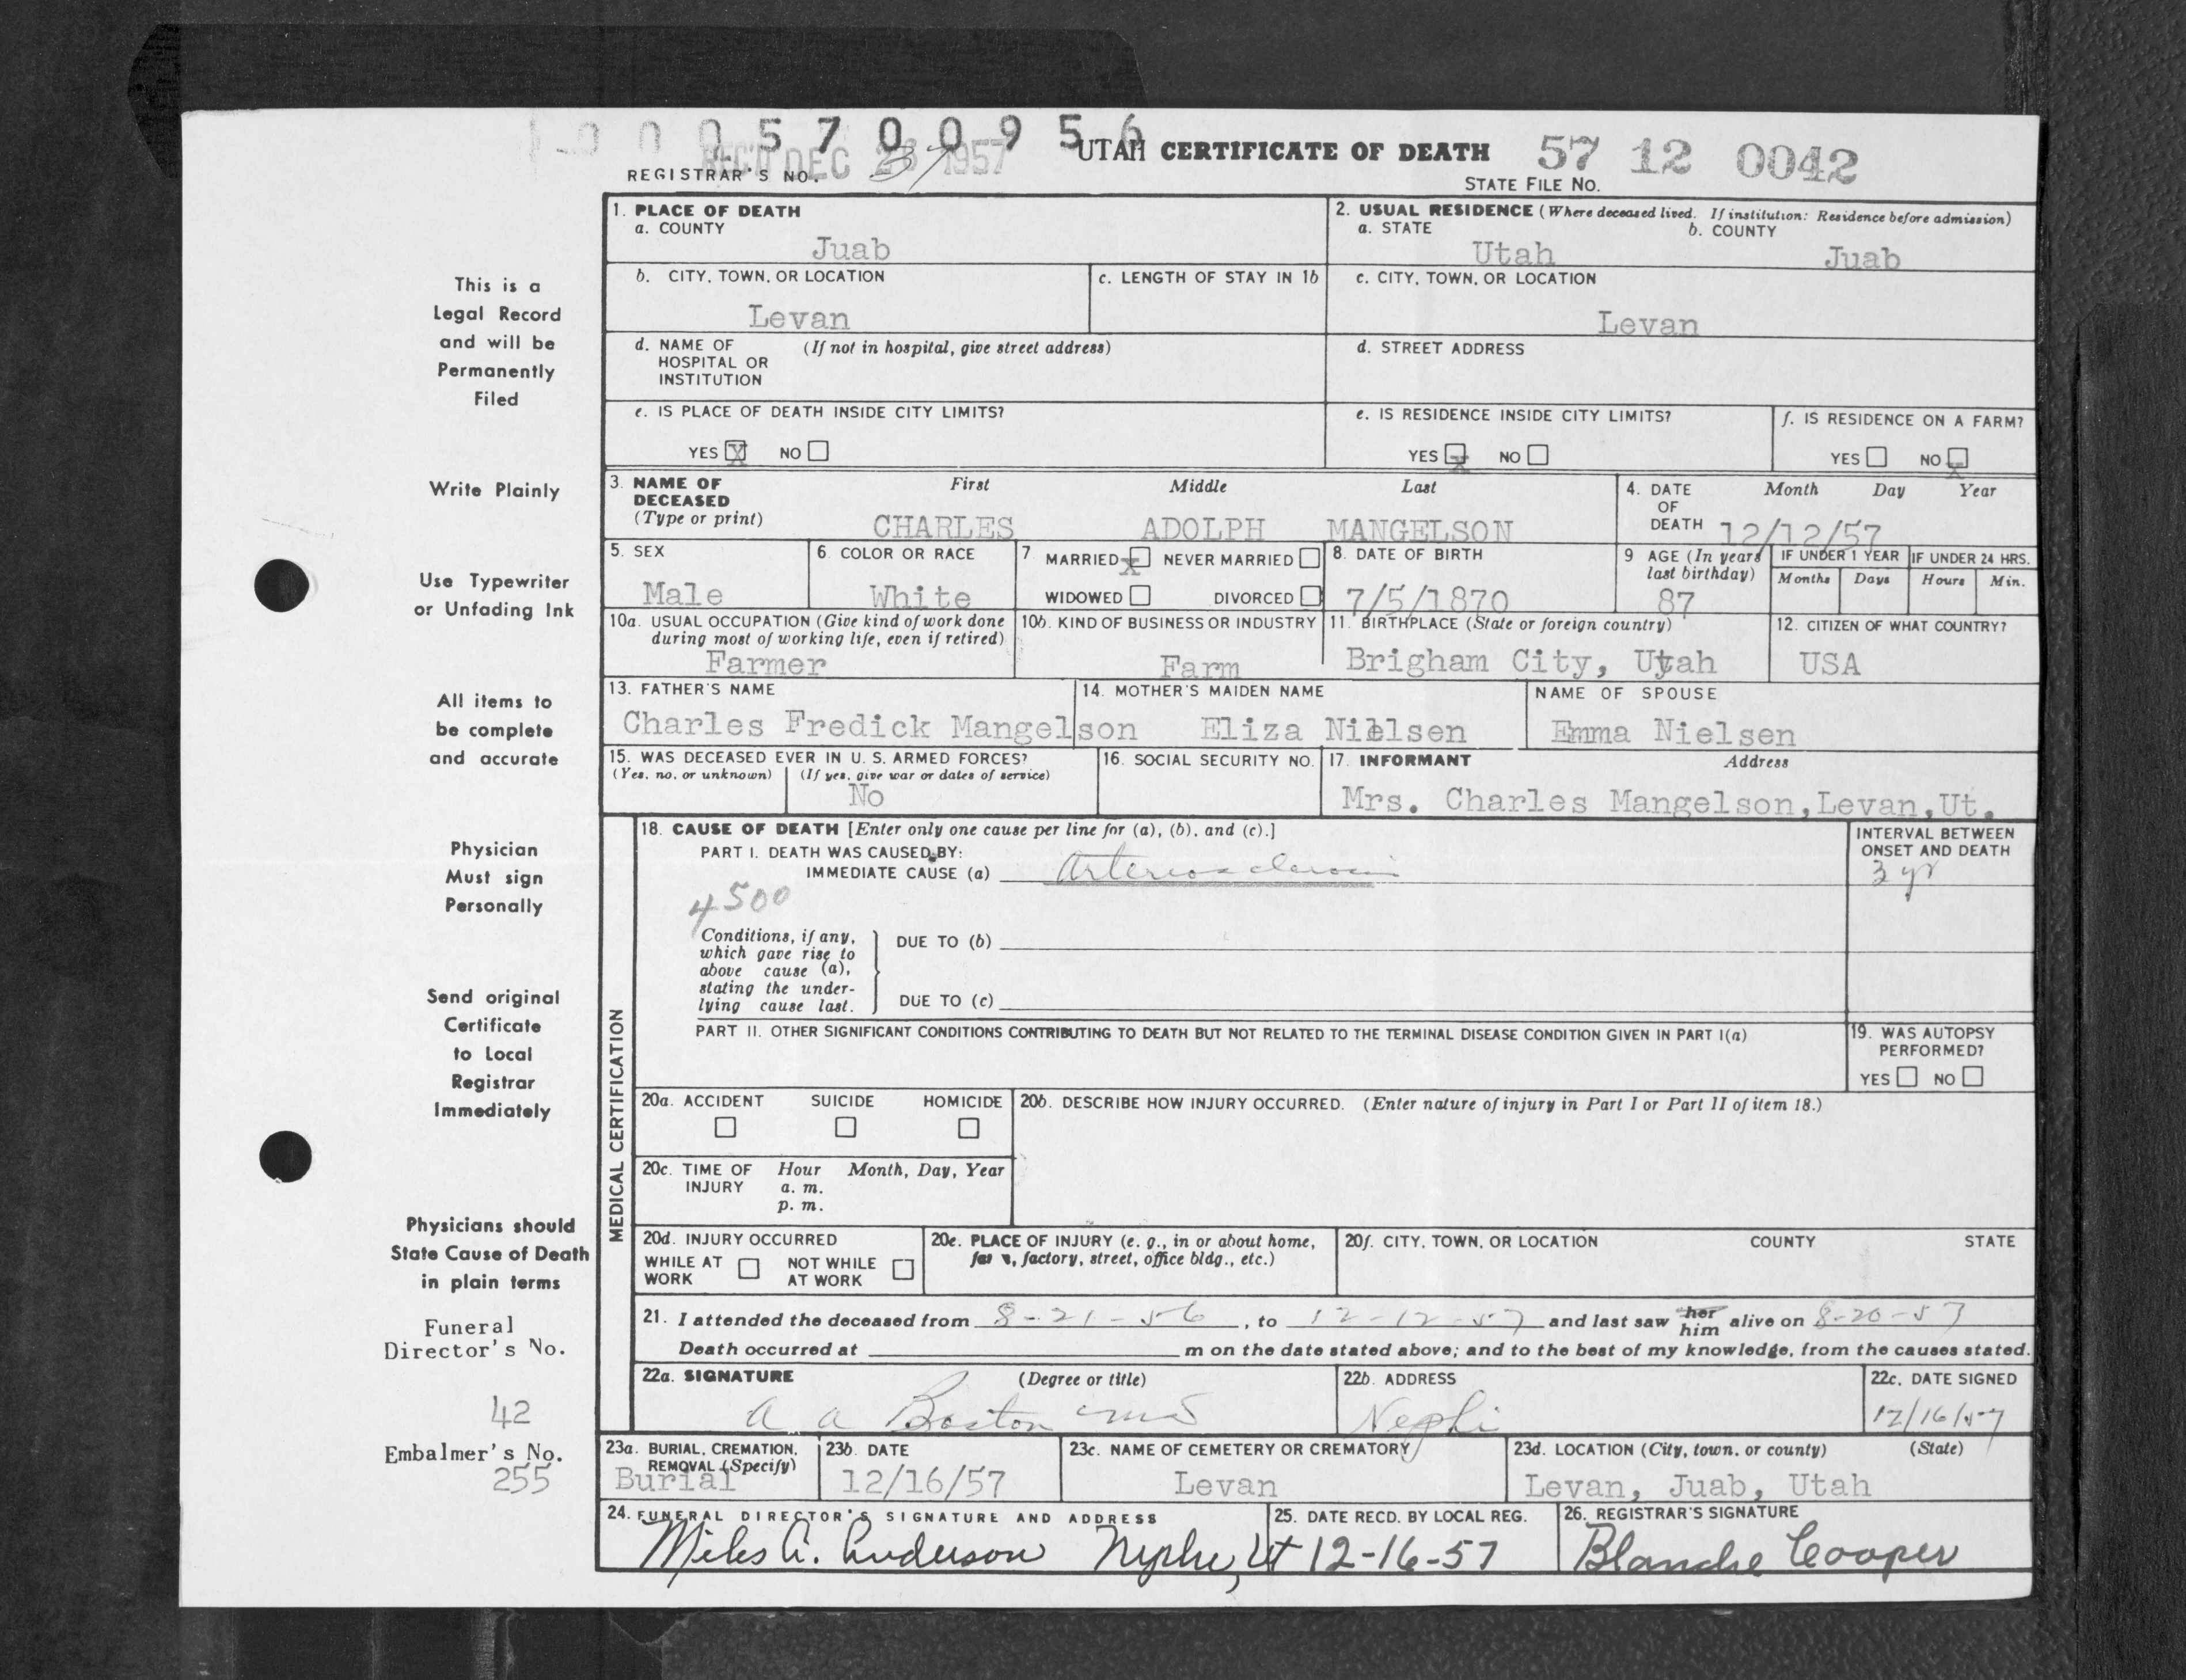 0 0 0 5 7 0 0 9 5 6
REC'D DEC 23 1957
UTAH CERTIFICATE OF DEATH 57 12 0042
REGISTRAR'S NO. 37
STATE FILE NO.
1. PLACE OF DEATH
a. COUNTY
Juab
2. USUAL RESIDENCE (Where deceased lived. If institution: Residence before admission)
a. STATE b. COUNTY
Utah Juab
b. CITY, TOWN, OR LOCATION
Levan
c. LENGTH OF STAY IN 1b
c. CITY, TOWN, OR LOCATION
Levan
d. NAME OF (If not in hospital, give street address)
HOSPITAL OR
INSTITUTION
d. STREET ADDRESS
e. IS PLACE OF DEATH INSIDE CITY LIMITS?
YES X NO
e. IS RESIDENCE INSIDE CITY LIMITS?
YES X NO
f. IS RESIDENCE ON A FARM?
YES NO X
3. NAME OF DECEASED (Type or print)
First Middle Last
CHARLES ADOLPH MANGELSON
4. DATE OF DEATH Month Day Year
12/12/57
5. SEX
Male
6. COLOR OR RACE
White
7. MARRIED X NEVER MARRIED
WIDOWED DIVORCED
8. DATE OF BIRTH
7/5/1870
9 AGE (In years last birthday)
87
IF UNDER 1 YEAR
Months Days
IF UNDER 24 HRS.
Hours Min.
10a. USUAL OCCUPATION (Give kind of work done
during most of working life, even if retired)
Farmer
10b. KIND OF BUSINESS OR INDUSTRY
Farm
11. BIRTHPLACE (State or foreign country)
Brigham City, Utah
12. CITIZEN OF WHAT COUNTRY?
USA
13. FATHER'S NAME
Charles Fredick Mangelson
14. MOTHER'S MAIDEN NAME
Eliza Nielsen
NAME OF SPOUSE
Emma Nielsen
15. WAS DECEASED EVER IN U. S. ARMED FORCES?
(Yes, no, or unknown) (If yes, give war or dates of service)
No
16. SOCIAL SECURITY NO.
17. INFORMANT Address
Mrs. Charles Mangelson,Levan,Ut.
MEDICAL CERTIFICATION
18. CAUSE OF DEATH [Enter only one cause per line for (a), (b), and (c).]
PART I. DEATH WAS CAUSED BY:
IMMEDIATE CAUSE (a) Arteriosclerosis
INTERVAL BETWEEN
ONSET AND DEATH
3 yr
4500
Conditions, if any,
which gave rise to
above cause (a),
stating the under-
lying cause last.
DUE TO (b)
DUE TO (c)
PART II. OTHER SIGNIFICANT CONDITIONS CONTRIBUTING TO DEATH BUT NOT RELATED TO THE TERMINAL DISEASE CONDITION GIVEN IN PART I(a)
19. WAS AUTOPSY
PERFORMED?
YES NO
20a. ACCIDENT SUICIDE HOMICIDE
20b. DESCRIBE HOW INJURY OCCURRED. (Enter nature of injury in Part I or Part II of item 18.)
20c. TIME OF INJURY Hour Month, Day, Year
a. m.
p. m.
20d. INJURY OCCURRED
WHILE AT WORK NOT WHILE AT WORK
20e. PLACE OF INJURY (e. g., in or about home,
farm, factory, street, office bldg., etc.)
20f. CITY, TOWN, OR LOCATION COUNTY STATE
21. I attended the deceased from 8-21-56, to 12-12-57 and last saw her him alive on 8-20-57
Death occurred at m on the date stated above; and to the best of my knowledge, from the causes stated.
22a. SIGNATURE (Degree or title)
A A Boston MD
22b. ADDRESS
Nephi
22c. DATE SIGNED
12/16/57
23a. BURIAL, CREMATION,
REMOVAL (Specify)
Burial
23b. DATE
12/16/57
23c. NAME OF CEMETERY OR CREMATORY
Levan
23d. LOCATION (City, town, or county) (State)
Levan, Juab, Utah
24. FUNERAL DIRECTOR'S SIGNATURE AND ADDRESS
Miles A. Anderson Nephi, Ut
25. DATE RECD. BY LOCAL REG.
12-16-57
26. REGISTRAR'S SIGNATURE
Blanche Cooper
This is a
Legal Record
and will be
Permanently
Filed
Write Plainly
Use Typewriter
or Unfading Ink
All items to
be complete
and accurate
Physician
Must sign
Personally
Send original
Certificate
to Local
Registrar
Immediately
Physicians should
State Cause of Death
in plain terms
Funeral
Director's No.
42
Embalmer's No.
255